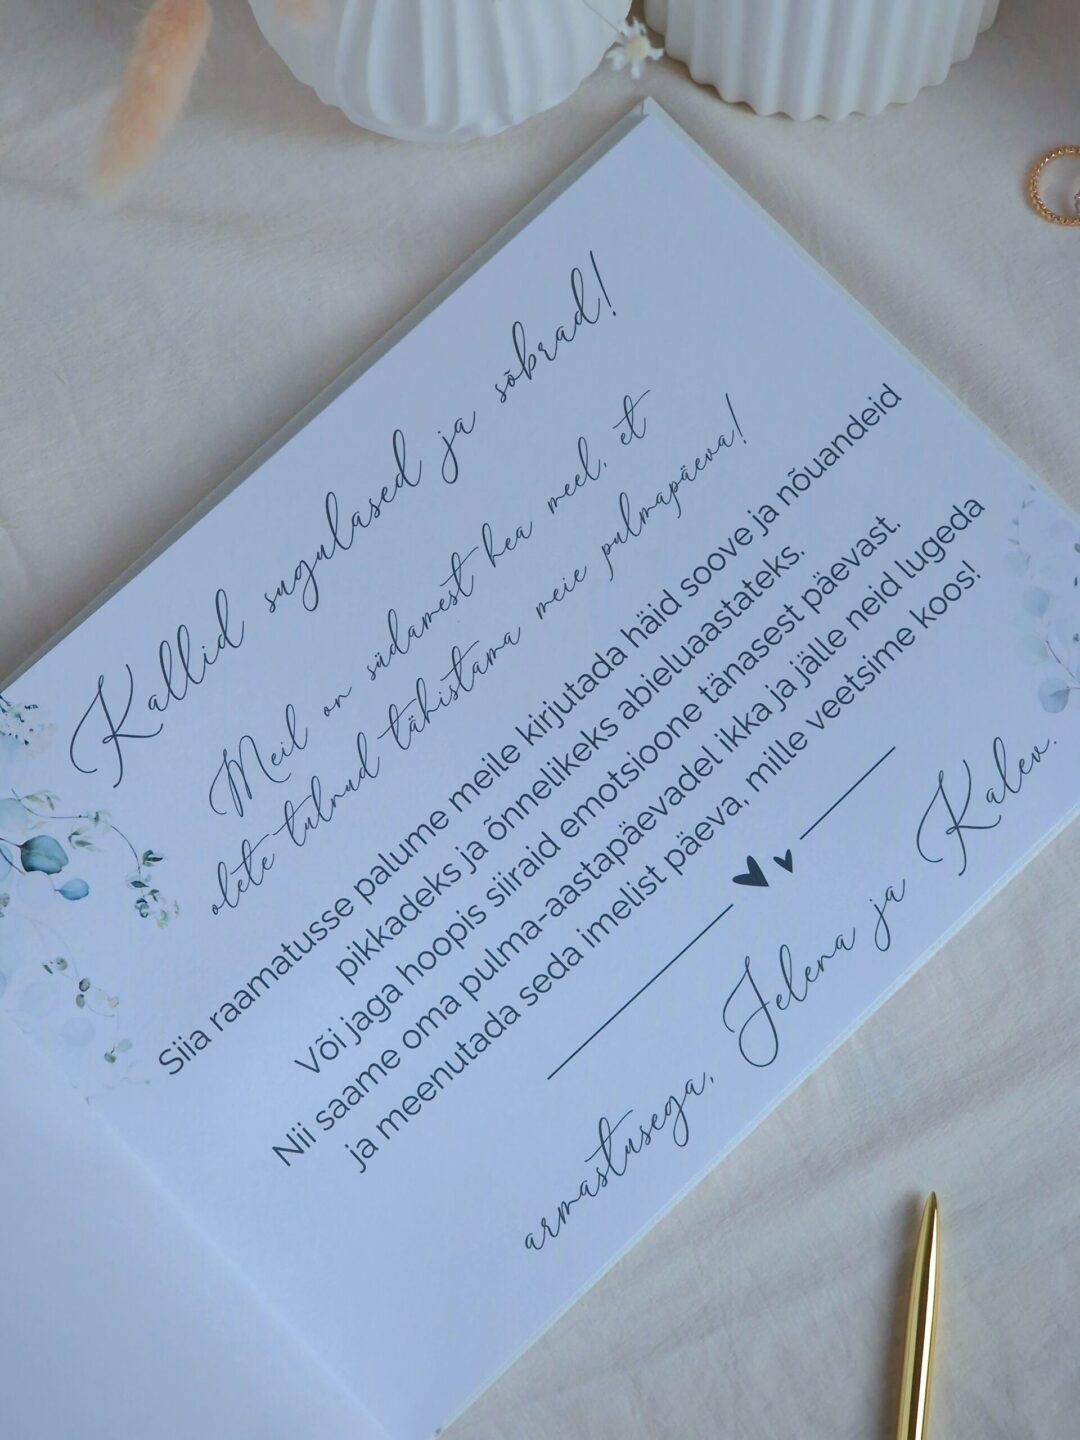 Kallid sugulased ja sõbrad!
Meil on südamest hea meel, et
olete tulnud tähistama meie pulmapäeva!
Siia raamatusse palume meile kirjutada häid soove ja nõuandeid
pikkadeks ja õnnelikeks abieluaastateks.
Või jaga hoopis siiraid emotsioone tänasest päevast.
Nii saame oma pulma-aastapäevadel ikka ja jälle neid lugeda
ja meenutada seda imelist päeva, mille veetsime koos!
armastusega, Jelena ja Kalev.